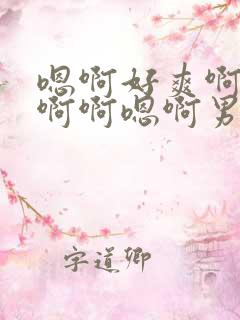 嗯啊好爽啊
啊啊嗯啊男
字道卿